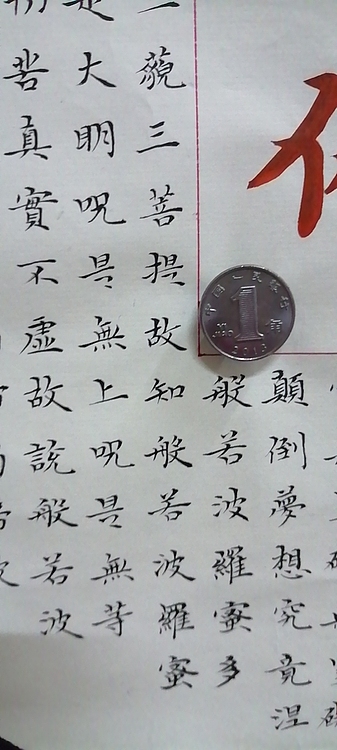 顛倒夢想究竟涅
般若波羅蜜多
一藐三菩提故知般若波羅蜜
是大明呪是無上呪是無等
苦真實不虛故說般若波
中国人民银行
1
角